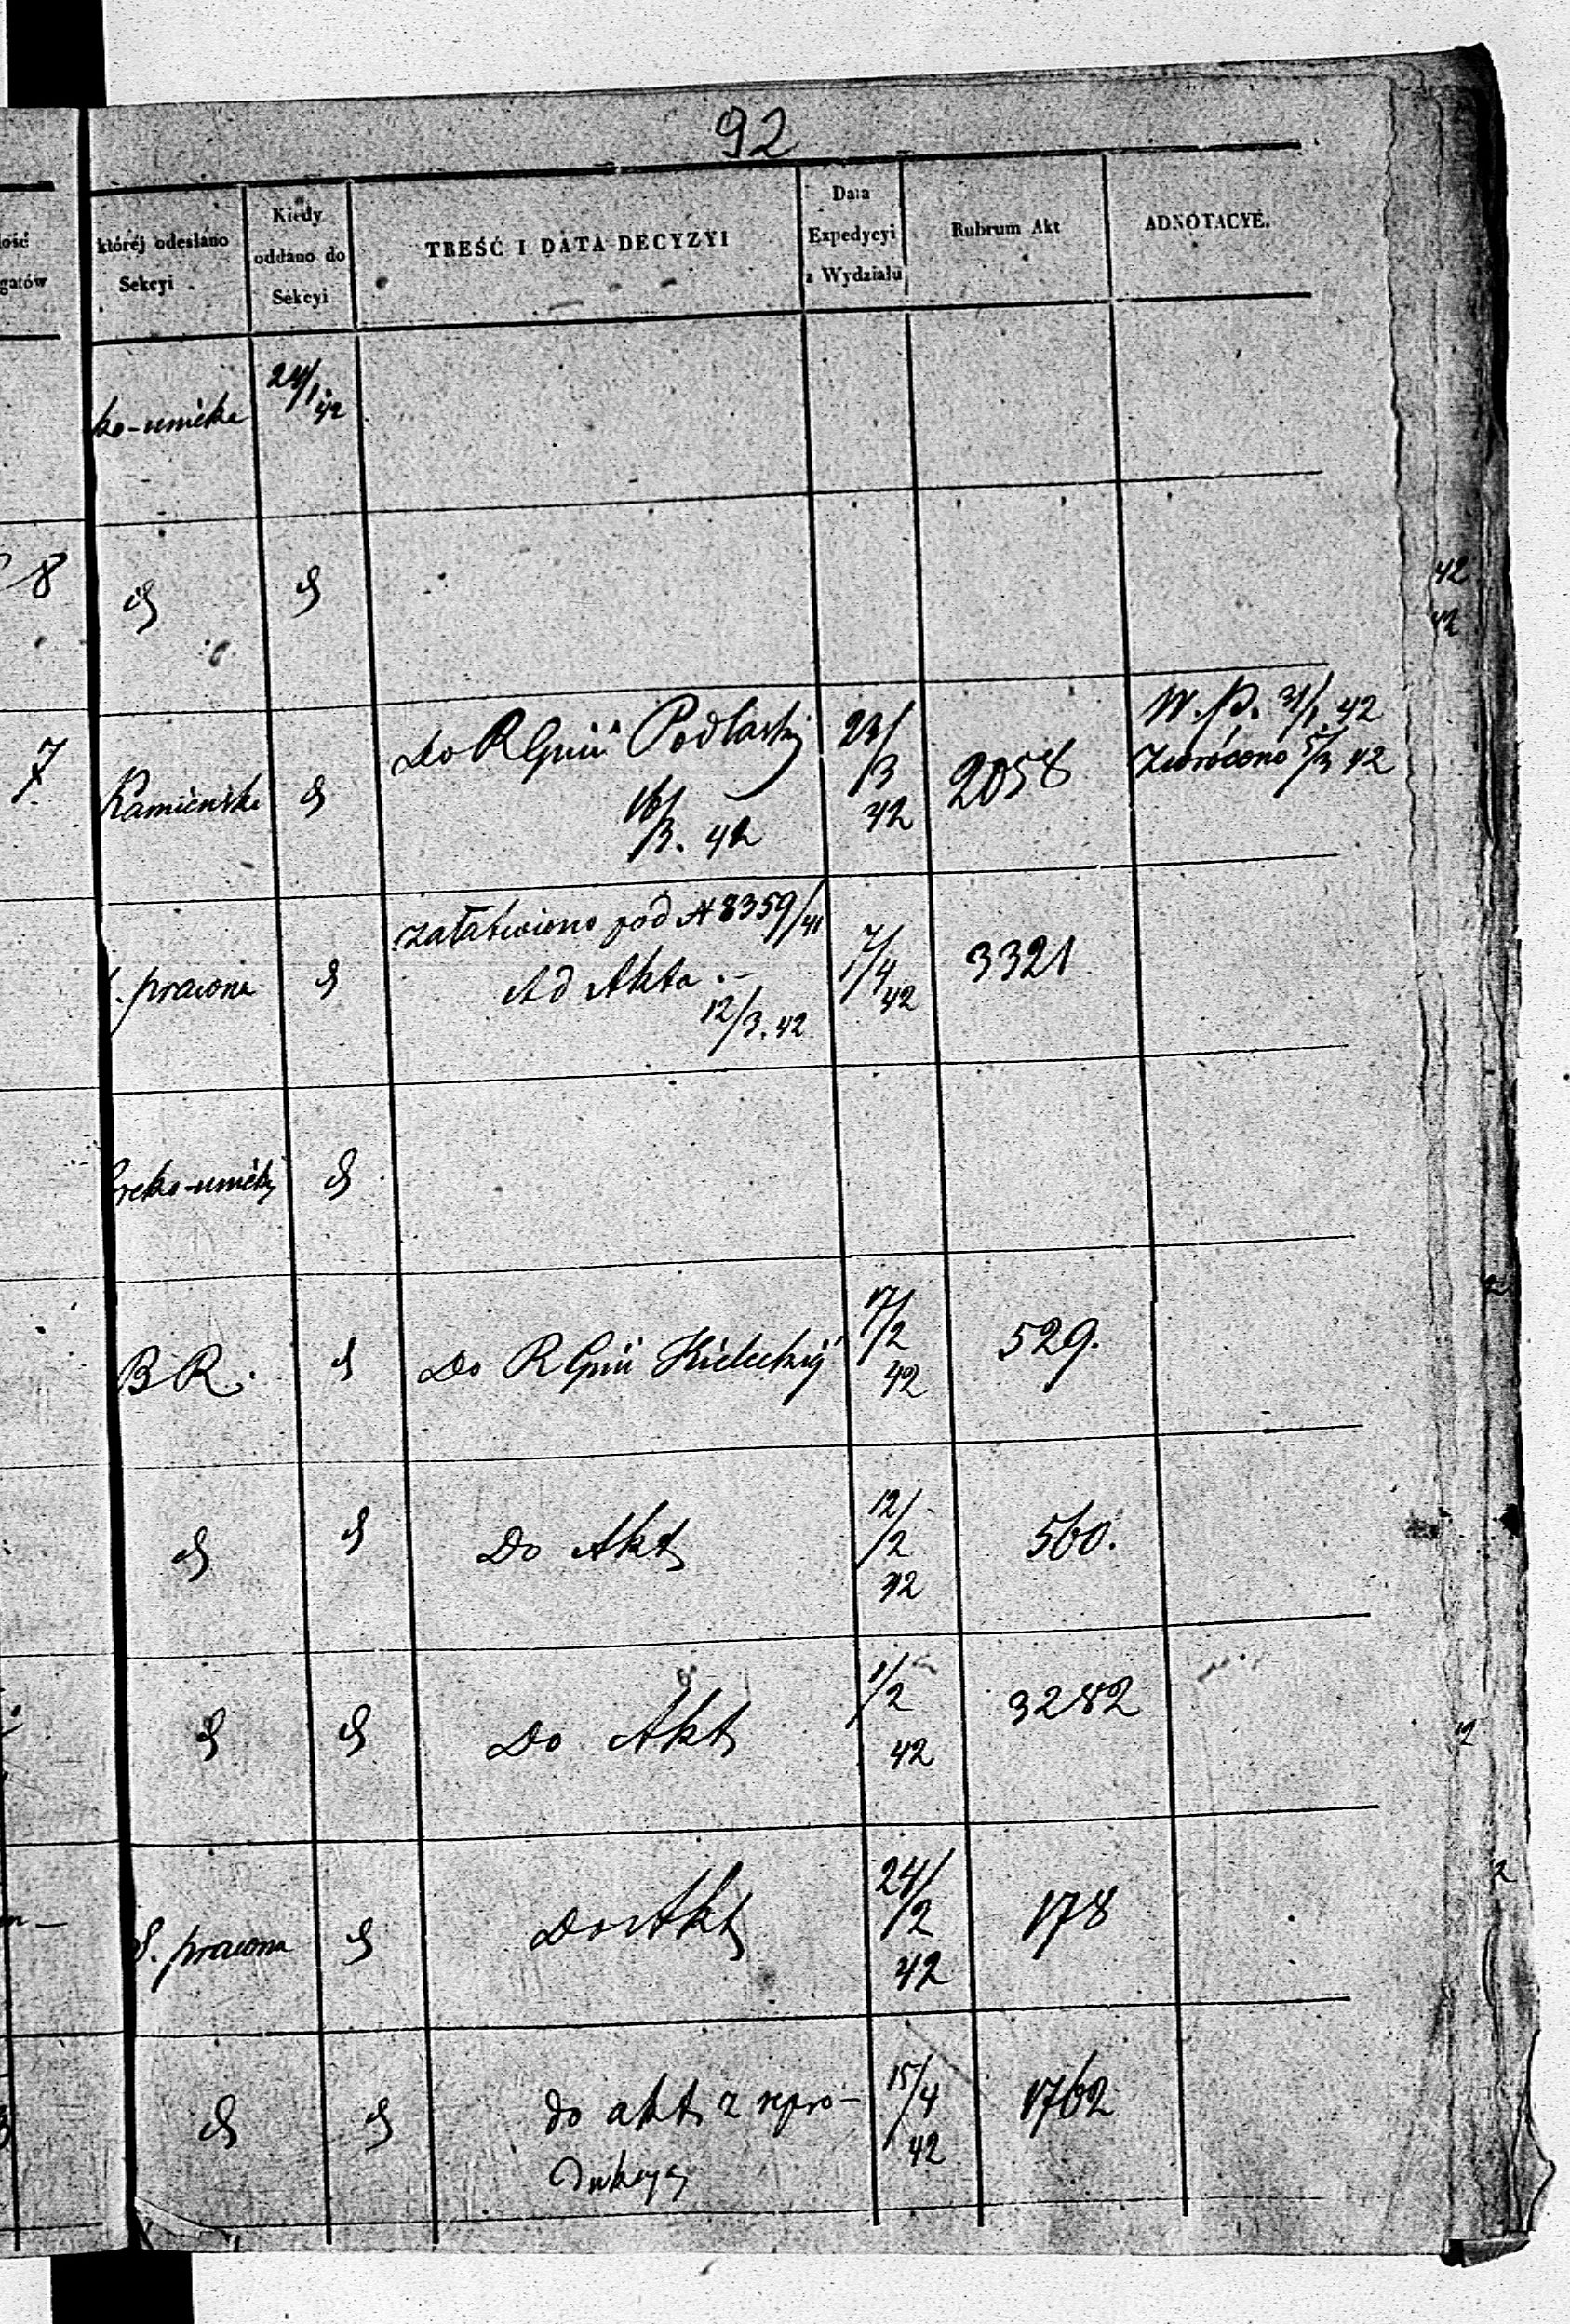 92
ość
gatów
któréj odesłano
Sekcyi
Kiedy
oddano do
Sekcyi
TREŚĆ I DATA DECYZYI
Data
Expedycyi
z Wydziału
Rubrum Akt
ADNOTACYE.
ko-unicka
24/1 42
8
42
42
7
Kamieńska
Do RGnii Podlaskiej
16/3. 42
23/
/3
42
2058
W. P. 31/1 42
Zwrócono 5/3 42
S. prawna
załatwiono pod N 8359/41
Ad Akta.-
12/3. 42
7/4
42
3321
Greko-unicka
BR.
Do RGnii Kieleckiej
17/2
42
529.
Do Akt
12/
/2
42
560.
Do Akt
1/2
42
3282
S. prawna
Do Akt
24/
/2
42
178
do akt z repro-
dukcyą
15/4
42
1762